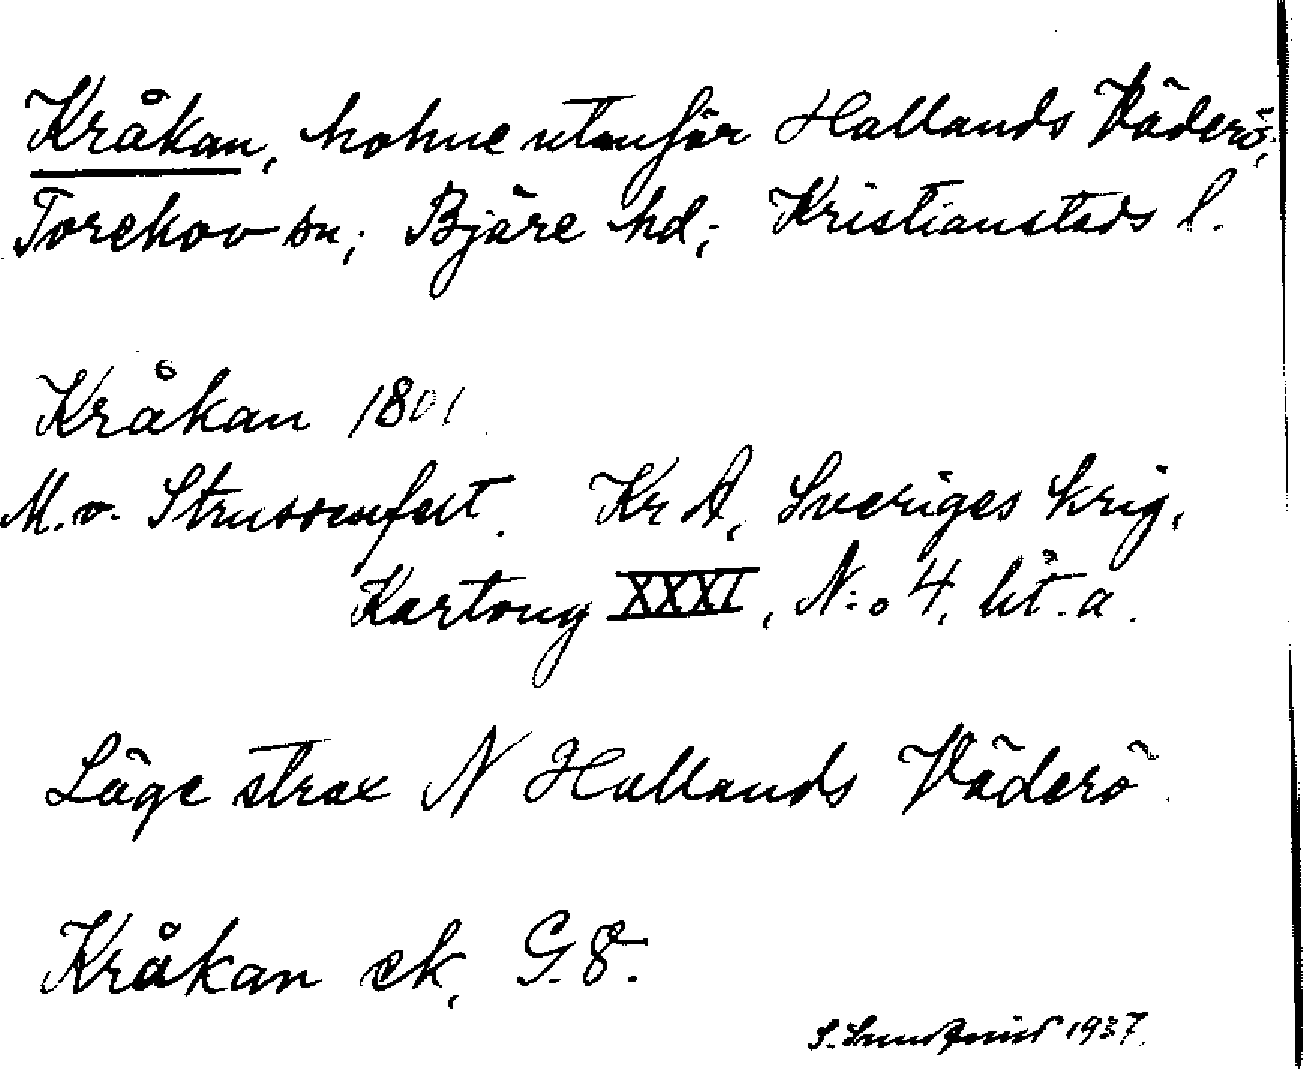 Kråkan, holme utanför Hallands Väderö,
Torekov sn; Bjäre hd; Kristianstads l.
Kråkan 1801
M. v. Strussenfelt. Kr A, Sveriges krig,
Kartong XXXI, N:o 4, lit. a.
Läge strax N Hallands Väderö.
Kråkan ek, G. 8.
S. Lundqvist 1937.